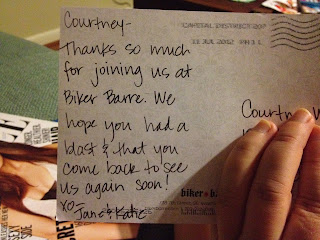 Courtney-
Thanks so much
for joining us at
Biker Barre. We
hope you had a
blast & that you
come back to see
us again soon!
xo-
Jane & Katie
CAPITAL DISTRICT 207
11 JUL 2012 PM 11 L
Courtney
biker